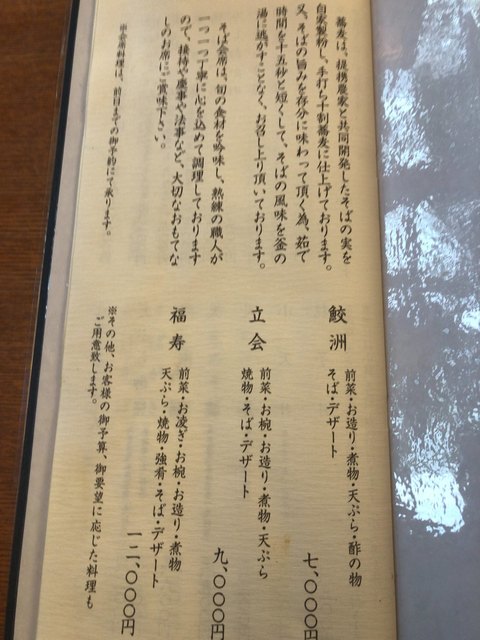 蕎麦は、提携農家と共同開発したそばの実を
自家製粉し、手打ち十割蕎麦に仕上げております。
又、そばの旨みを存分に味わって頂く為、茹で
時間を十五秒と短くして、そばの風味を釜の
湯に逃がすことなく、お召し上り頂いております。
そば会席は、旬の食材を吟味し、熟練の職人が
一つ一つ丁寧に心を込めて調理しております
ので、接待や慶事や法事など、大切なおもてな
しのお席にご賞味下さい。
※会席料理は、前日までの御予約にて承ります。
鮫洲
前菜・お造り・煮物・天ぷら・酢の物
そば・デザート
七、〇〇〇円
立会
前菜・お椀・お造り・煮物・天ぷら
焼物・そば・デザート
九、〇〇〇円
福寿
前菜・お凌ぎ・お椀・お造り・煮物
天ぷら・焼物・強肴・そば・デザート
一二、〇〇〇円
※その他、お客様の御予算、御要望に応じた料理も
ご用意致します。